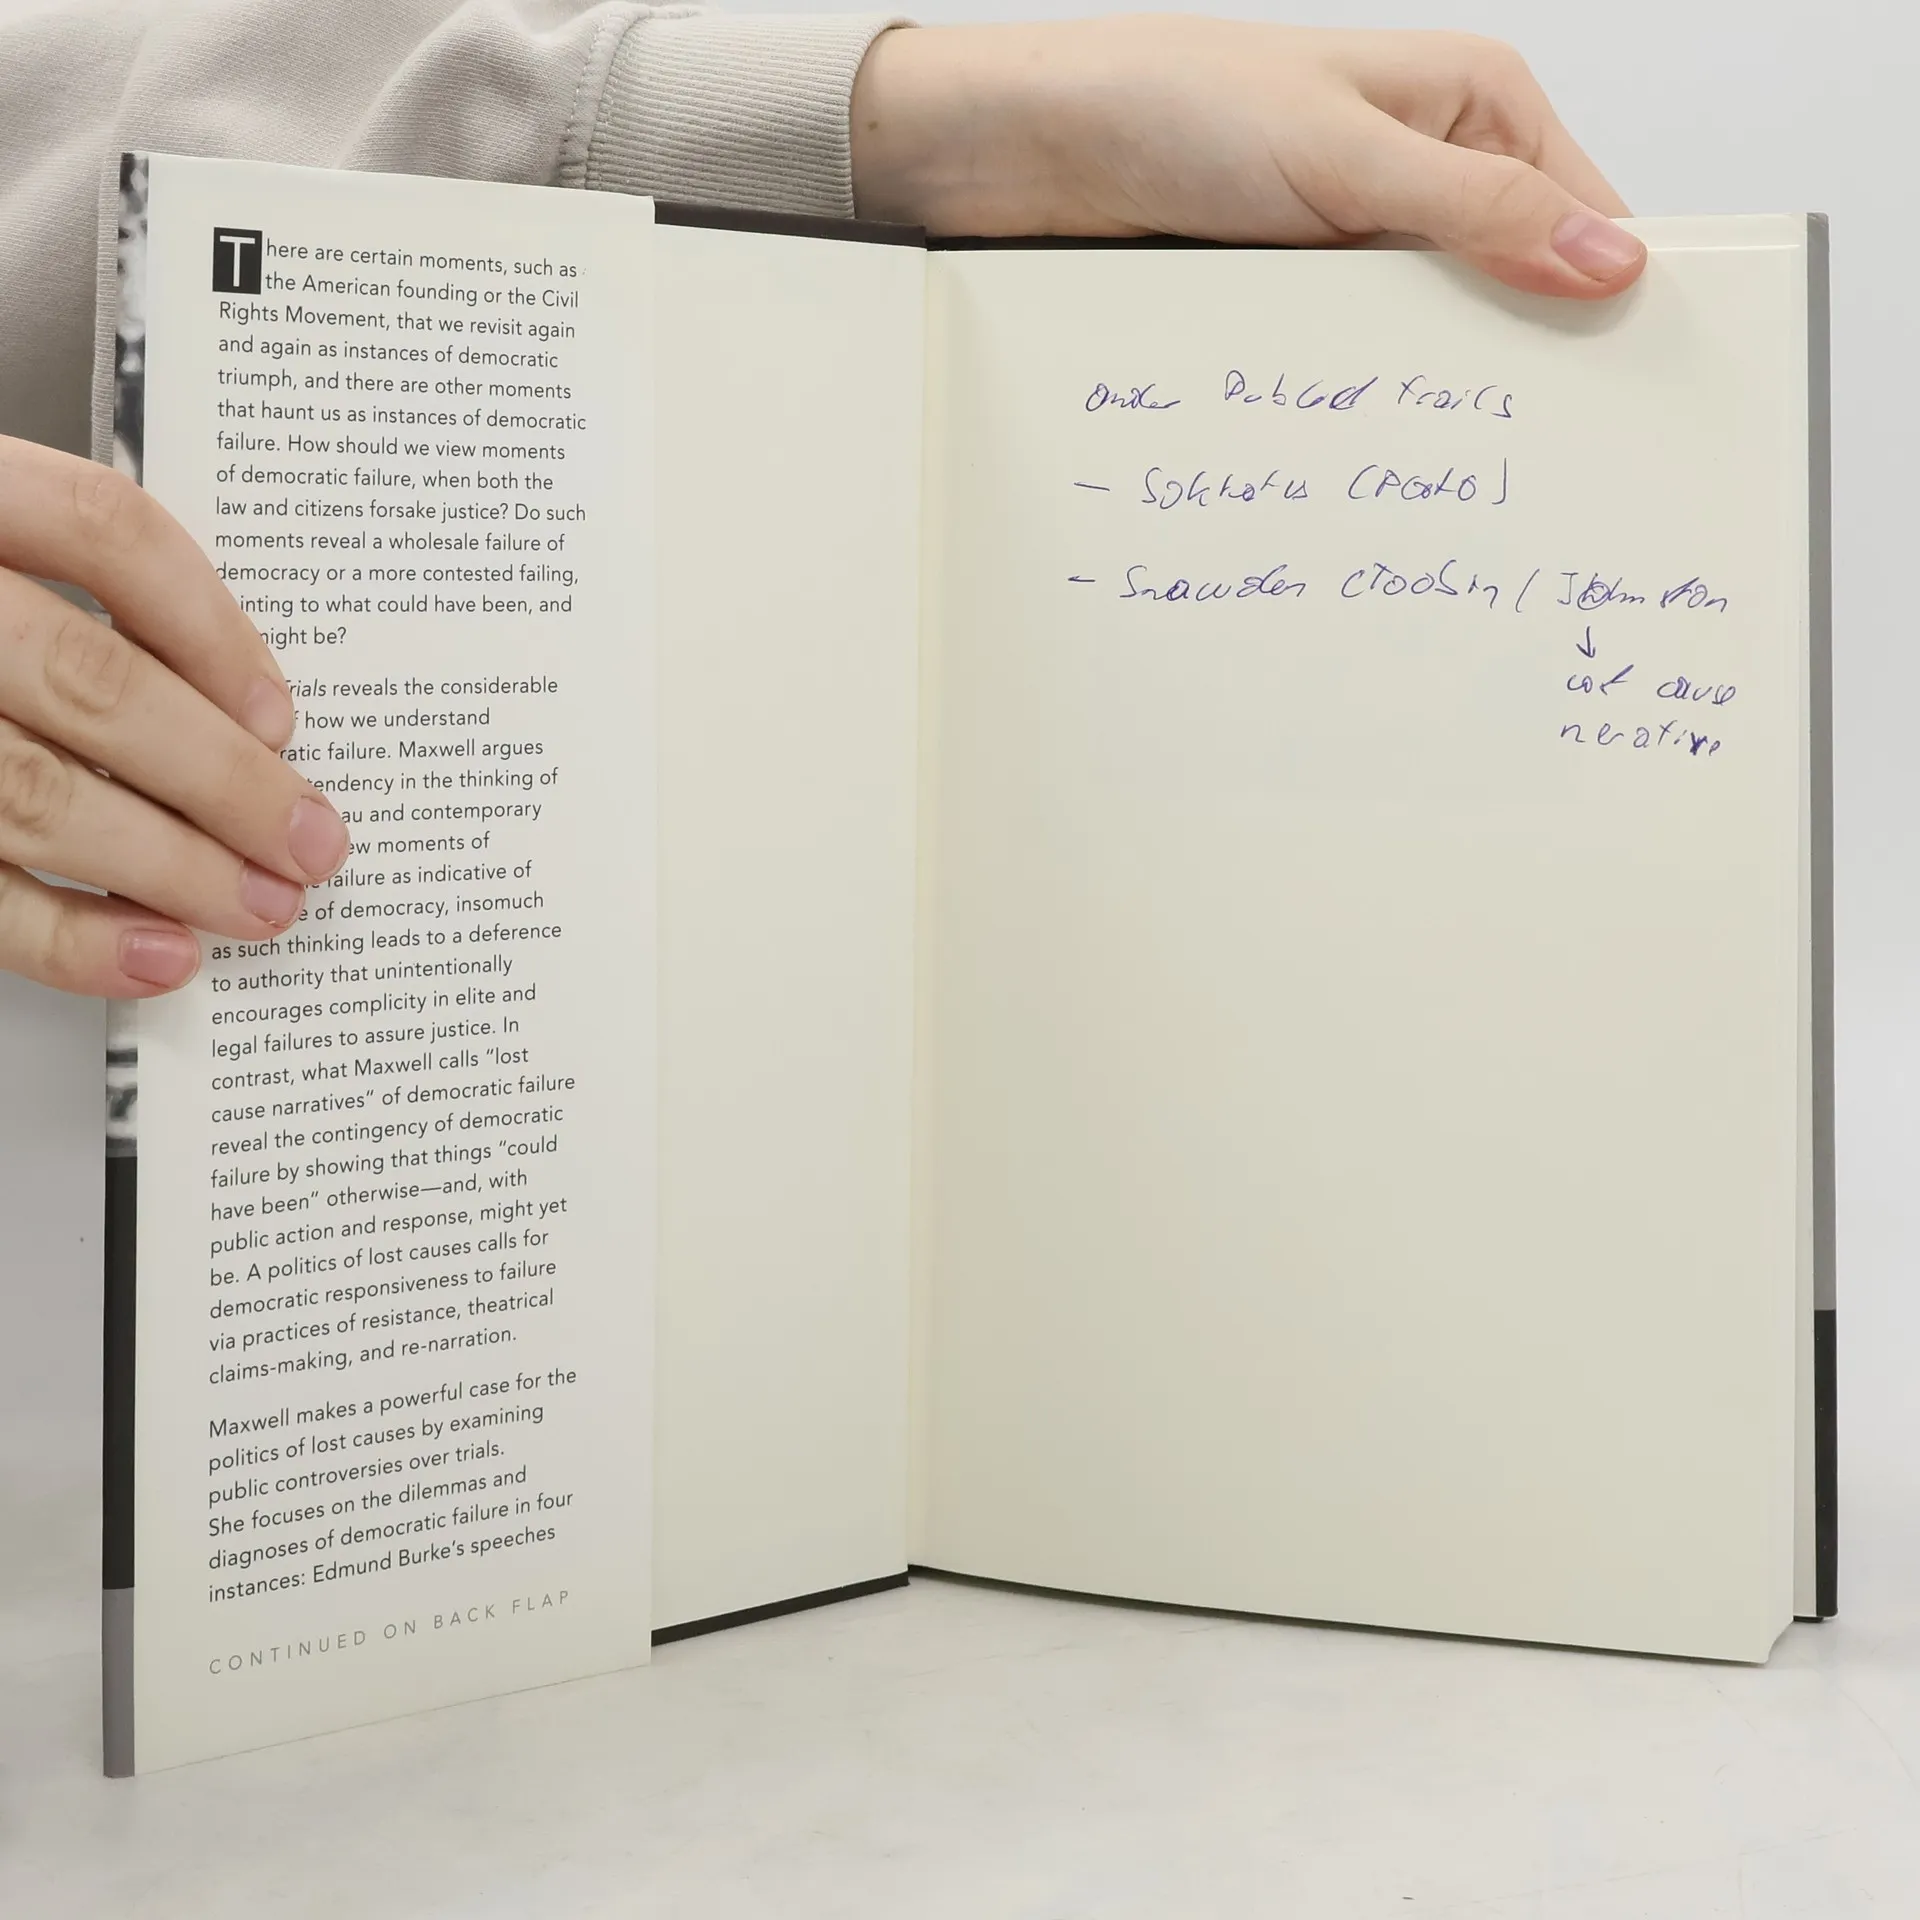 There are certain moments, such as
the American founding or the Civil
Rights Movement, that we revisit again
and again as instances of democratic
triumph, and there are other moments
that haunt us as instances of democratic
failure. How should we view moments
of democratic failure, when both the
law and citizens forsake justice? Do such
moments reveal a wholesale failure of
democracy or a more contested failing,
inting to what could have been, and
might be?
Trials reveals the considerable
f how we understand
ratic failure. Maxwell argues
tendency in the thinking of
au and contemporary
ew moments of
failure as indicative of
e of democracy, insomuch
as such thinking leads to a deference
to authority that unintentionally
encourages complicity in elite and
legal failures to assure justice. In
contrast, what Maxwell calls “lost
cause narratives” of democratic failure
reveal the contingency of democratic
failure by showing that things “could
have been” otherwise—and, with
public action and response, might yet
be. A politics of lost causes calls for
democratic responsiveness to failure
via practices of resistance, theatrical
claims-making, and re-narration.
Maxwell makes a powerful case for the
politics of lost causes by examining
public controversies over trials.
She focuses on the dilemmas and
diagnoses of democratic failure in four
instances: Edmund Burke’s speeches
CONTINUED ON BACK FLAP
- (Plato)
- Snowden (Toobin / Johnston
↓
cause